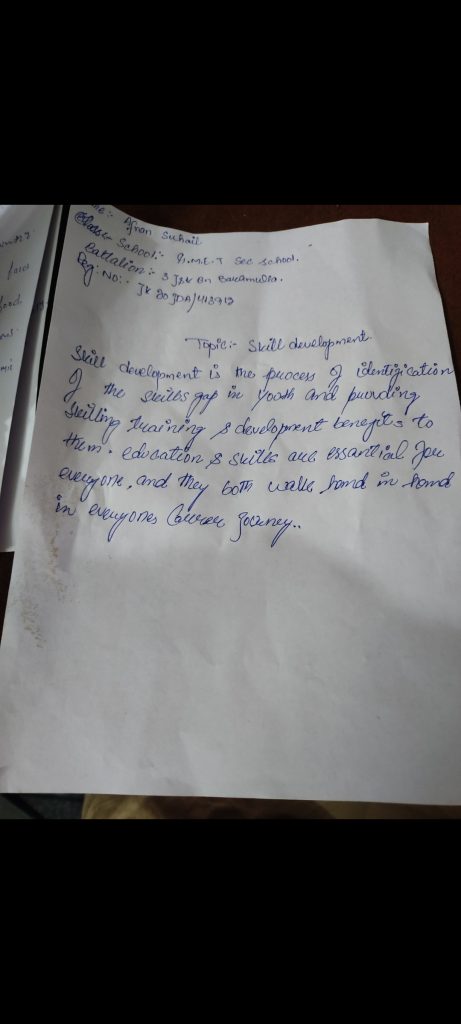 me:- Afnan Suhail
Class:- School:- H.M.E.T Sec School.
Battalion:- 3 J&K Bn Baramulla.
Reg: No:- JK 20 JDA/
Topic:- Skill development.
Skill development is the process of identification
of the skills gap in youth and providing
skilling training & development benefits to
them. education & skills are essantial for
everyone, and they both walk hand in hand
in everyones Career Journey..
food